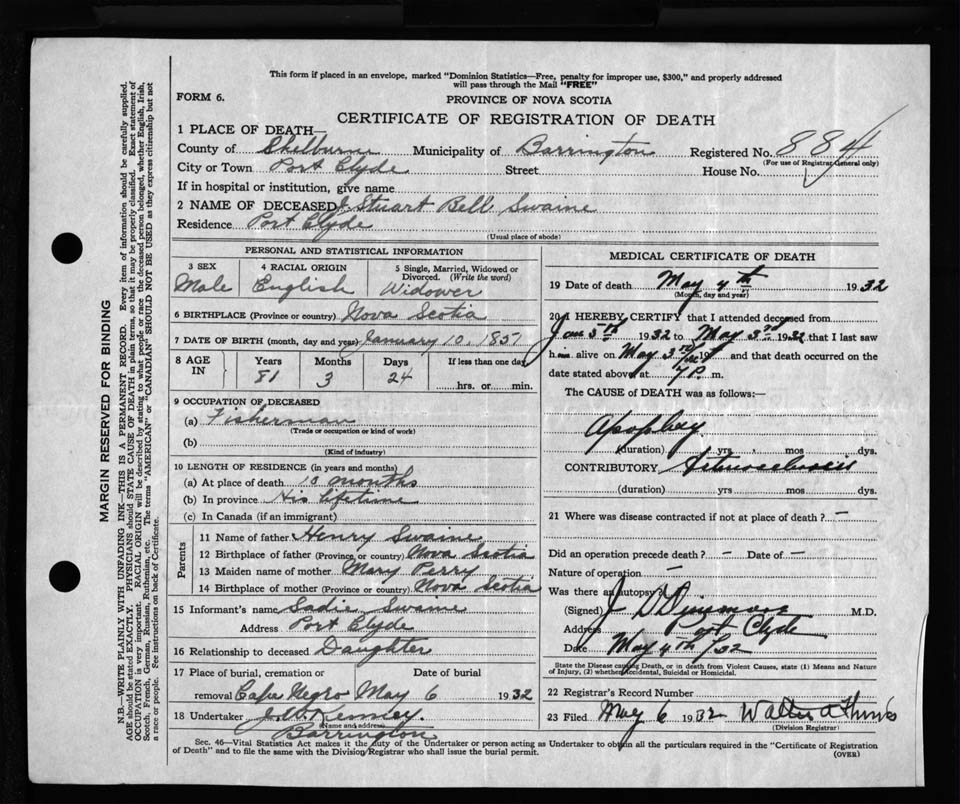 This form if placed in an envelope, marked "Dominion Statistics—Free, penalty for improper use, $300," and properly addressed
will pass through the Mail "FREE"
FORM 6.
PROVINCE OF NOVA SCOTIA
CERTIFICATE OF REGISTRATION OF DEATH
1 PLACE OF DEATH—
County of Shelburne Municipality of Barrington Registered No. 884
(For use of Registrar General only)
City or Town Port Clyde Street House No.
If in hospital or institution, give name
2 NAME OF DECEASED J. Stuart Bell Swaine
Residence Port Clyde
(Usual place of abode)
PERSONAL AND STATISTICAL INFORMATION
3 SEX
Male
4 RACIAL ORIGIN
English
5 Single, Married, Widowed or
Divorced. (Write the word)
Widower
6 BIRTHPLACE (Province or country) Nova Scotia
7 DATE OF BIRTH (month, day and year) January 10, 1851
8 AGE IN
Years Months Days If less than one day
81 3 24 hrs. or min.
9 OCCUPATION OF DECEASED
(a) Fisherman
(Trade or occupation or kind of work)
(b)
(Kind of industry)
10 LENGTH OF RESIDENCE (in years and months)
(a) At place of death 10 months
(b) In province His lifetime
(c) In Canada (if an immigrant)
Parents
11 Name of father Henry Swaine
12 Birthplace of father (Province or country) Nova Scotia
13 Maiden name of mother Mary Perry
14 Birthplace of mother (Province or country) Nova Scotia
15 Informant's name Sadie Swaine
Address Port Clyde
16 Relationship to deceased Daughter
17 Place of burial, cremation or Date of burial
removal Cape Negro May 6 1932
18 Undertaker J.W. Kenney.
(Name and address)
Barrington
MEDICAL CERTIFICATE OF DEATH
19 Date of death May 4th 1932
(Month, day and year)
20 I HEREBY CERTIFY that I attended deceased from
Jan 5th 1932 to May 3rd 1932 that I last saw
h alive on May 3rd 19 and that death occurred on the
date stated above at 7 P. m.
The CAUSE of DEATH was as follows:—
Apoplexy
(duration) yrs mos dys.
CONTRIBUTORY Arteriosclerosis
(duration) yrs mos dys.
21 Where was disease contracted if not at place of death? —
Did an operation precede death? — Date of —
Nature of operation —
Was there an autopsy?
(Signed) J D Dinsmore M.D.
Address Port Clyde
Date May 4th /32
State the Disease causing Death, or in death from Violent Causes, state (1) Means and Nature
of Injury, (2) whether Accidental, Suicidal or Homicidal.
22 Registrar's Record Number
23 Filed May 6 1932 Walter
(Division Registrar)
Sec. 46—Vital Statistics Act makes it the duty of the Undertaker or person acting as Undertaker to obtain all the particulars required in the "Certificate of Registration
of Death" and to file the same with the Division Registrar who shall issue the burial permit.
(OVER)
MARGIN RESERVED FOR BINDING
N.B.—WRITE PLAINLY WITH UNFADING INK—THIS IS A PERMANENT RECORD. Every item of information should be carefully supplied.
AGE should be stated EXACTLY. PHYSICIANS should STATE CAUSE OF DEATH in plain terms, so that it may be properly classified. Exact statement of
OCCUPATION is very important. RACIAL ORIGIN will be described by stating to what people or race the deceased person belonged, whether English, Irish,
Scotch, French, German, Russian, Ruthenian, etc. The terms "AMERICAN" or "CANADIAN" SHOULD NOT BE USED as they express citizenship but not
a race or people. See instructions on back of Certificate.